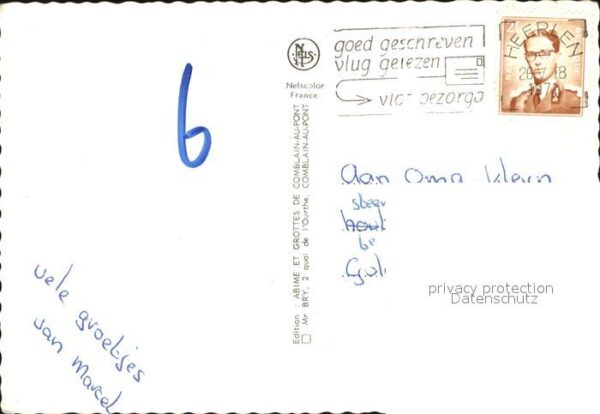 6
NELS
Nelscolor
France
goed geschreven
vlug gelezen
vlot bezorgd
HEERLEN
18
Edition : ABIME ET GROTTES DE COMBLAIN-AU-PONT
Mr BRY, 2 quai de l'Ourthe, COMBLAIN-AU-PONT
Aan Oma Klein
be
privacy protection
Datenschutz
vele groetjes
van Marcel